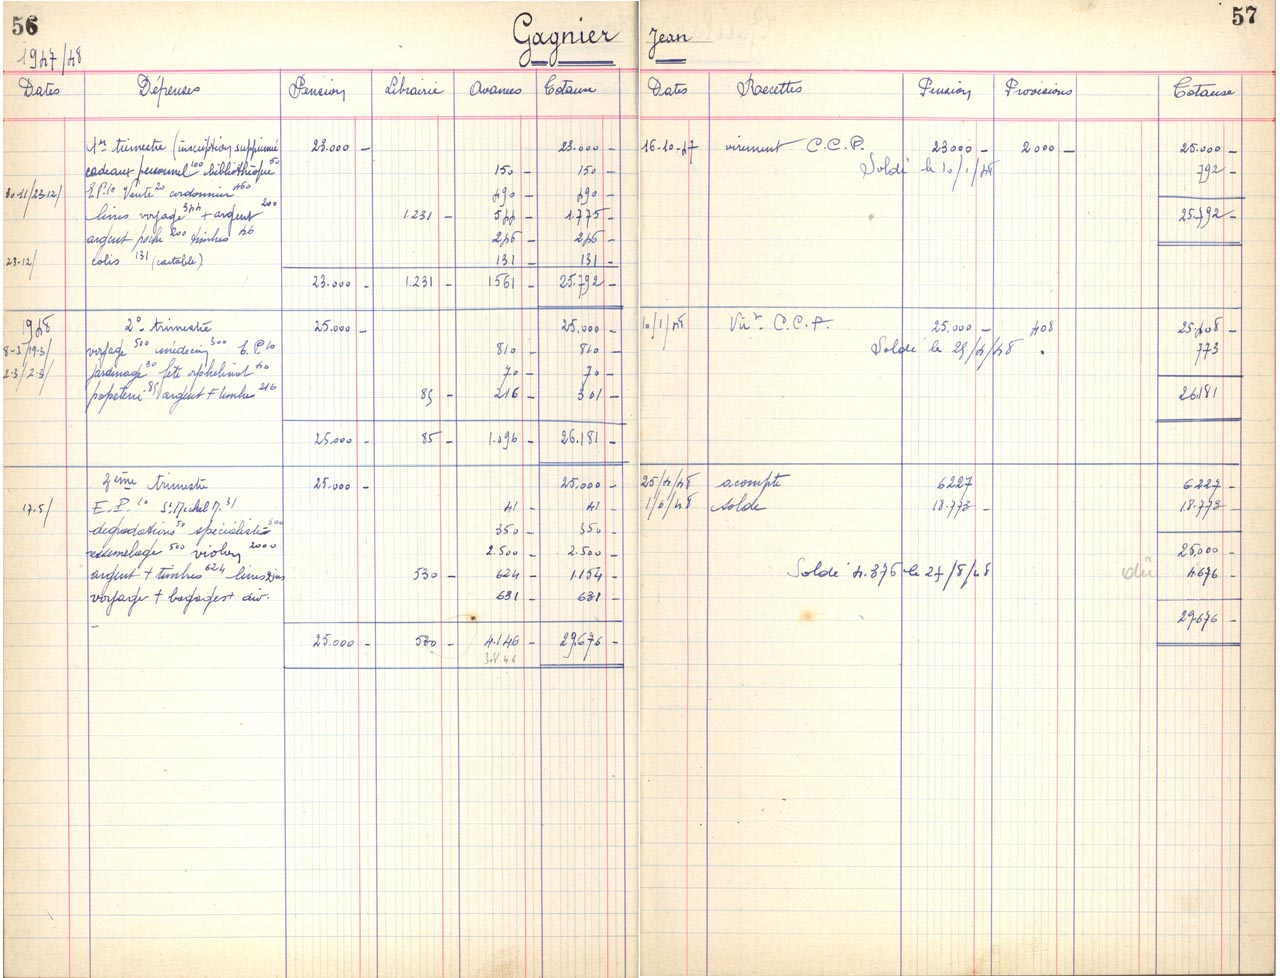 56
1947/48
Gagnier
Dates Dépenses Pension Librairie Avances Totaux
1er trimestre (inscription supprimée 23.000 - 23.000 -
cadeaux personnel 100 bibliothèque 50 150 - 150 -
30-11/23-12/ E.P. 10 Vente 20 cordonnier 460 490 - 490 -
livres voyage 344 + argent 200 1.231 - 544 - 1.775 -
argent poche 200 timbres 46 246 - 246 -
23-12/ colis 131 (cartable) 131 - 131 -
23.000 - 1.231 - 1561 - 25.792 -
1948 2e trimestre 25.000 - 25.000 -
8-3/19-3/ voyage 500 médecin 300 E.P. 10 810 - 810 -
2-3/2-3/ jardinage 30 fête orphelinat 40 70 - 70 -
papeterie 85 argent + timbres 216 85 - 216 - 301 -
25.000 - 85 - 1.096 - 26.181 -
3ème trimestre 25.000 - 25.000 -
17-5/ E.P. 10 St Michel N. 31 41 - 41 -
dégradations 50 spécialités 300 350 - 350 -
ressemelage 500 violon 2000 2.500 - 2.500 -
argent + timbres 624 livres 530 - 624 - 1.154 -
voyage + bagages + div. 631 - 631 -
25.000 - 530 - 4.146 - 29.676 -
57
Jean
Dates Recettes Pension Provisions Totaux
16-10-47 virement C.C.P. 23000 - 2000 - 25.000 -
Soldé le 10/1/48 792 -
25.792 -
10/1/48 Virt C.C.P. 25.000 - 408 25.408 -
Soldé le 25/4/48 773
26.181
25/4/48 acompte 6227 6.227 -
1/6/48 solde 18.773 - 18.773 -
25.000 -
Soldé 4.376 le 27/8/48 dû 4.676 -
29.676 -